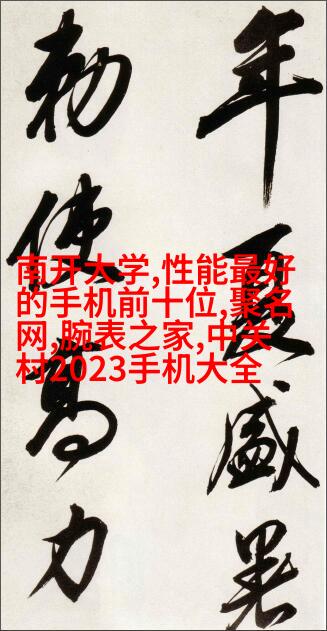 年夏盛暑
勅使高力
南开大学,性能最好
的手机前十位,聚名
网,腕表之家,中关
村2023手机大全